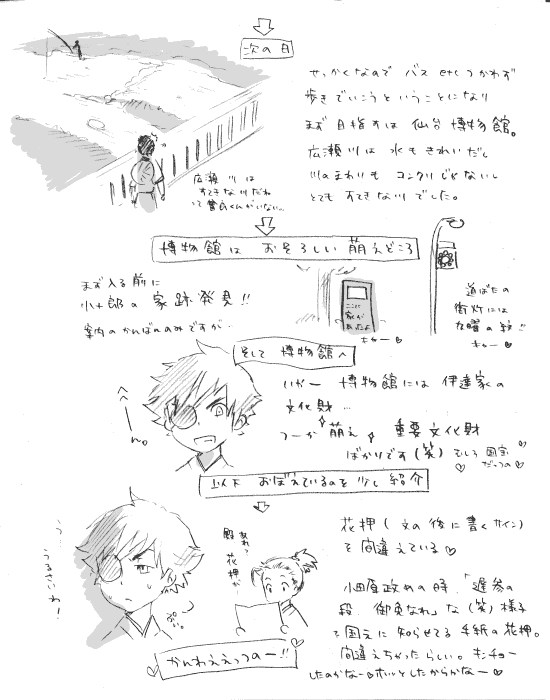 次の日
せっかくなので バス etc つかわず
歩きでいこうと いうことになり
まず 目指すは 仙台 博物館。
広瀬川は 水もきれいだし
川のまわりも コンクリじゃないし
とても すてきな川でした。
広瀬川は
すてきな川だね
博物館は おそろしい 萌えどころ
まず入る前に
小十郎の 家跡発見!!
案内のかんばんのみですが…
ここに
家が
あったよ
キャー♡
道ばたの
街灯には
九曜の紋!!
キャー♡
そして 博物館へ
いやー 博物館には 伊達家の
文化財…
つーか 萌え 重要文化財
ばかりです(笑) そして 国宝
だっつの♡
へへーん。
以下 おぼえているのを 少し紹介
う…
うるさいわー!
ぷい。
あれ?
殿 花押が
花押(文の後に書くサイン)
を間違えている♡
小田原攻めの時、「遅参の
段、御免なれ」な(笑)様子
を国元に知らせてる 手紙の花押。
間違えちゃったらしい。キンチョー
したのかなー♡ホッとしたからかなー♡
かんわええっつのー!!